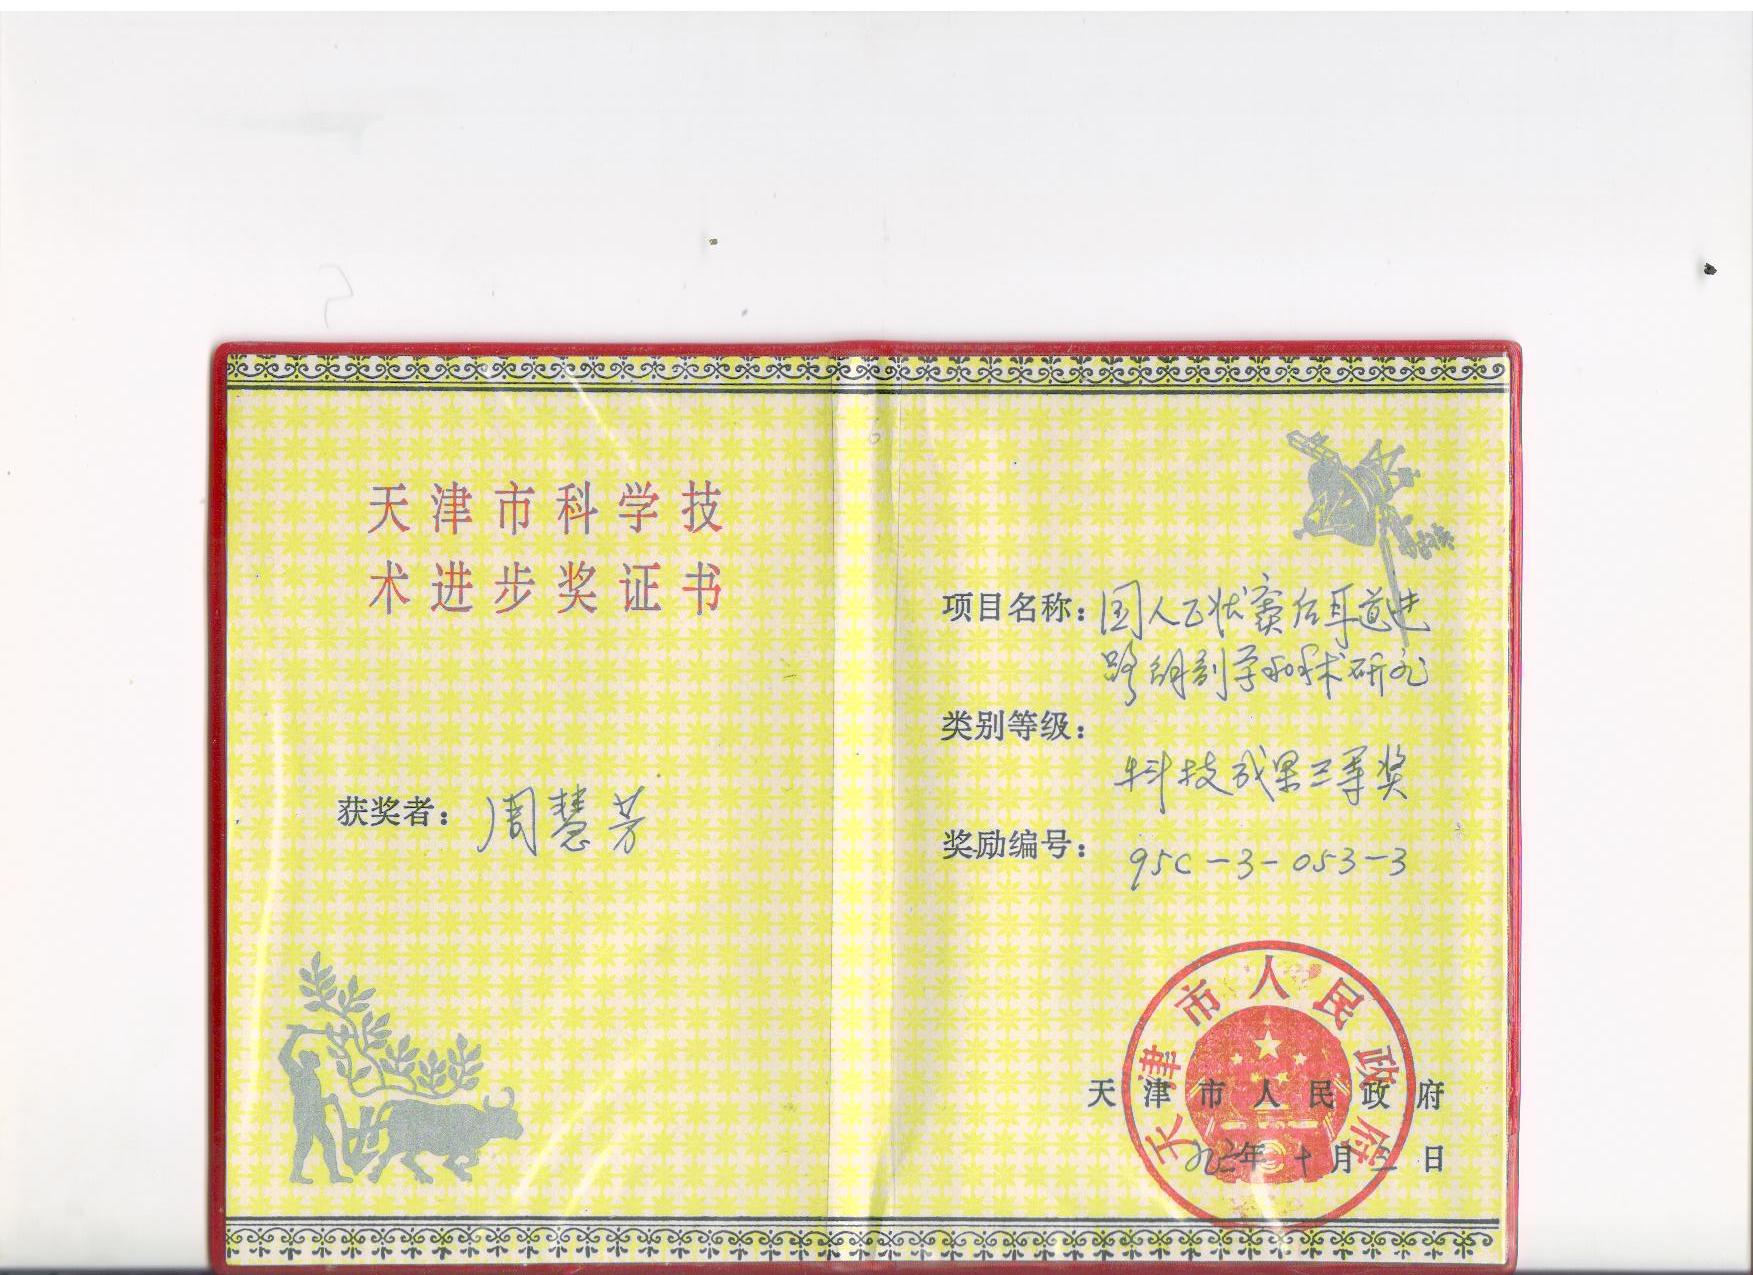 天津市科学技
术进步奖证书
获奖者：周慧芳
项目名称：国人乙状窦后耳道进
路解剖学和手术研究
类别等级：
科技成果三等奖
奖励编号：95C-3-053-3
天津市人民政府
天津市人民政府
年十月三日